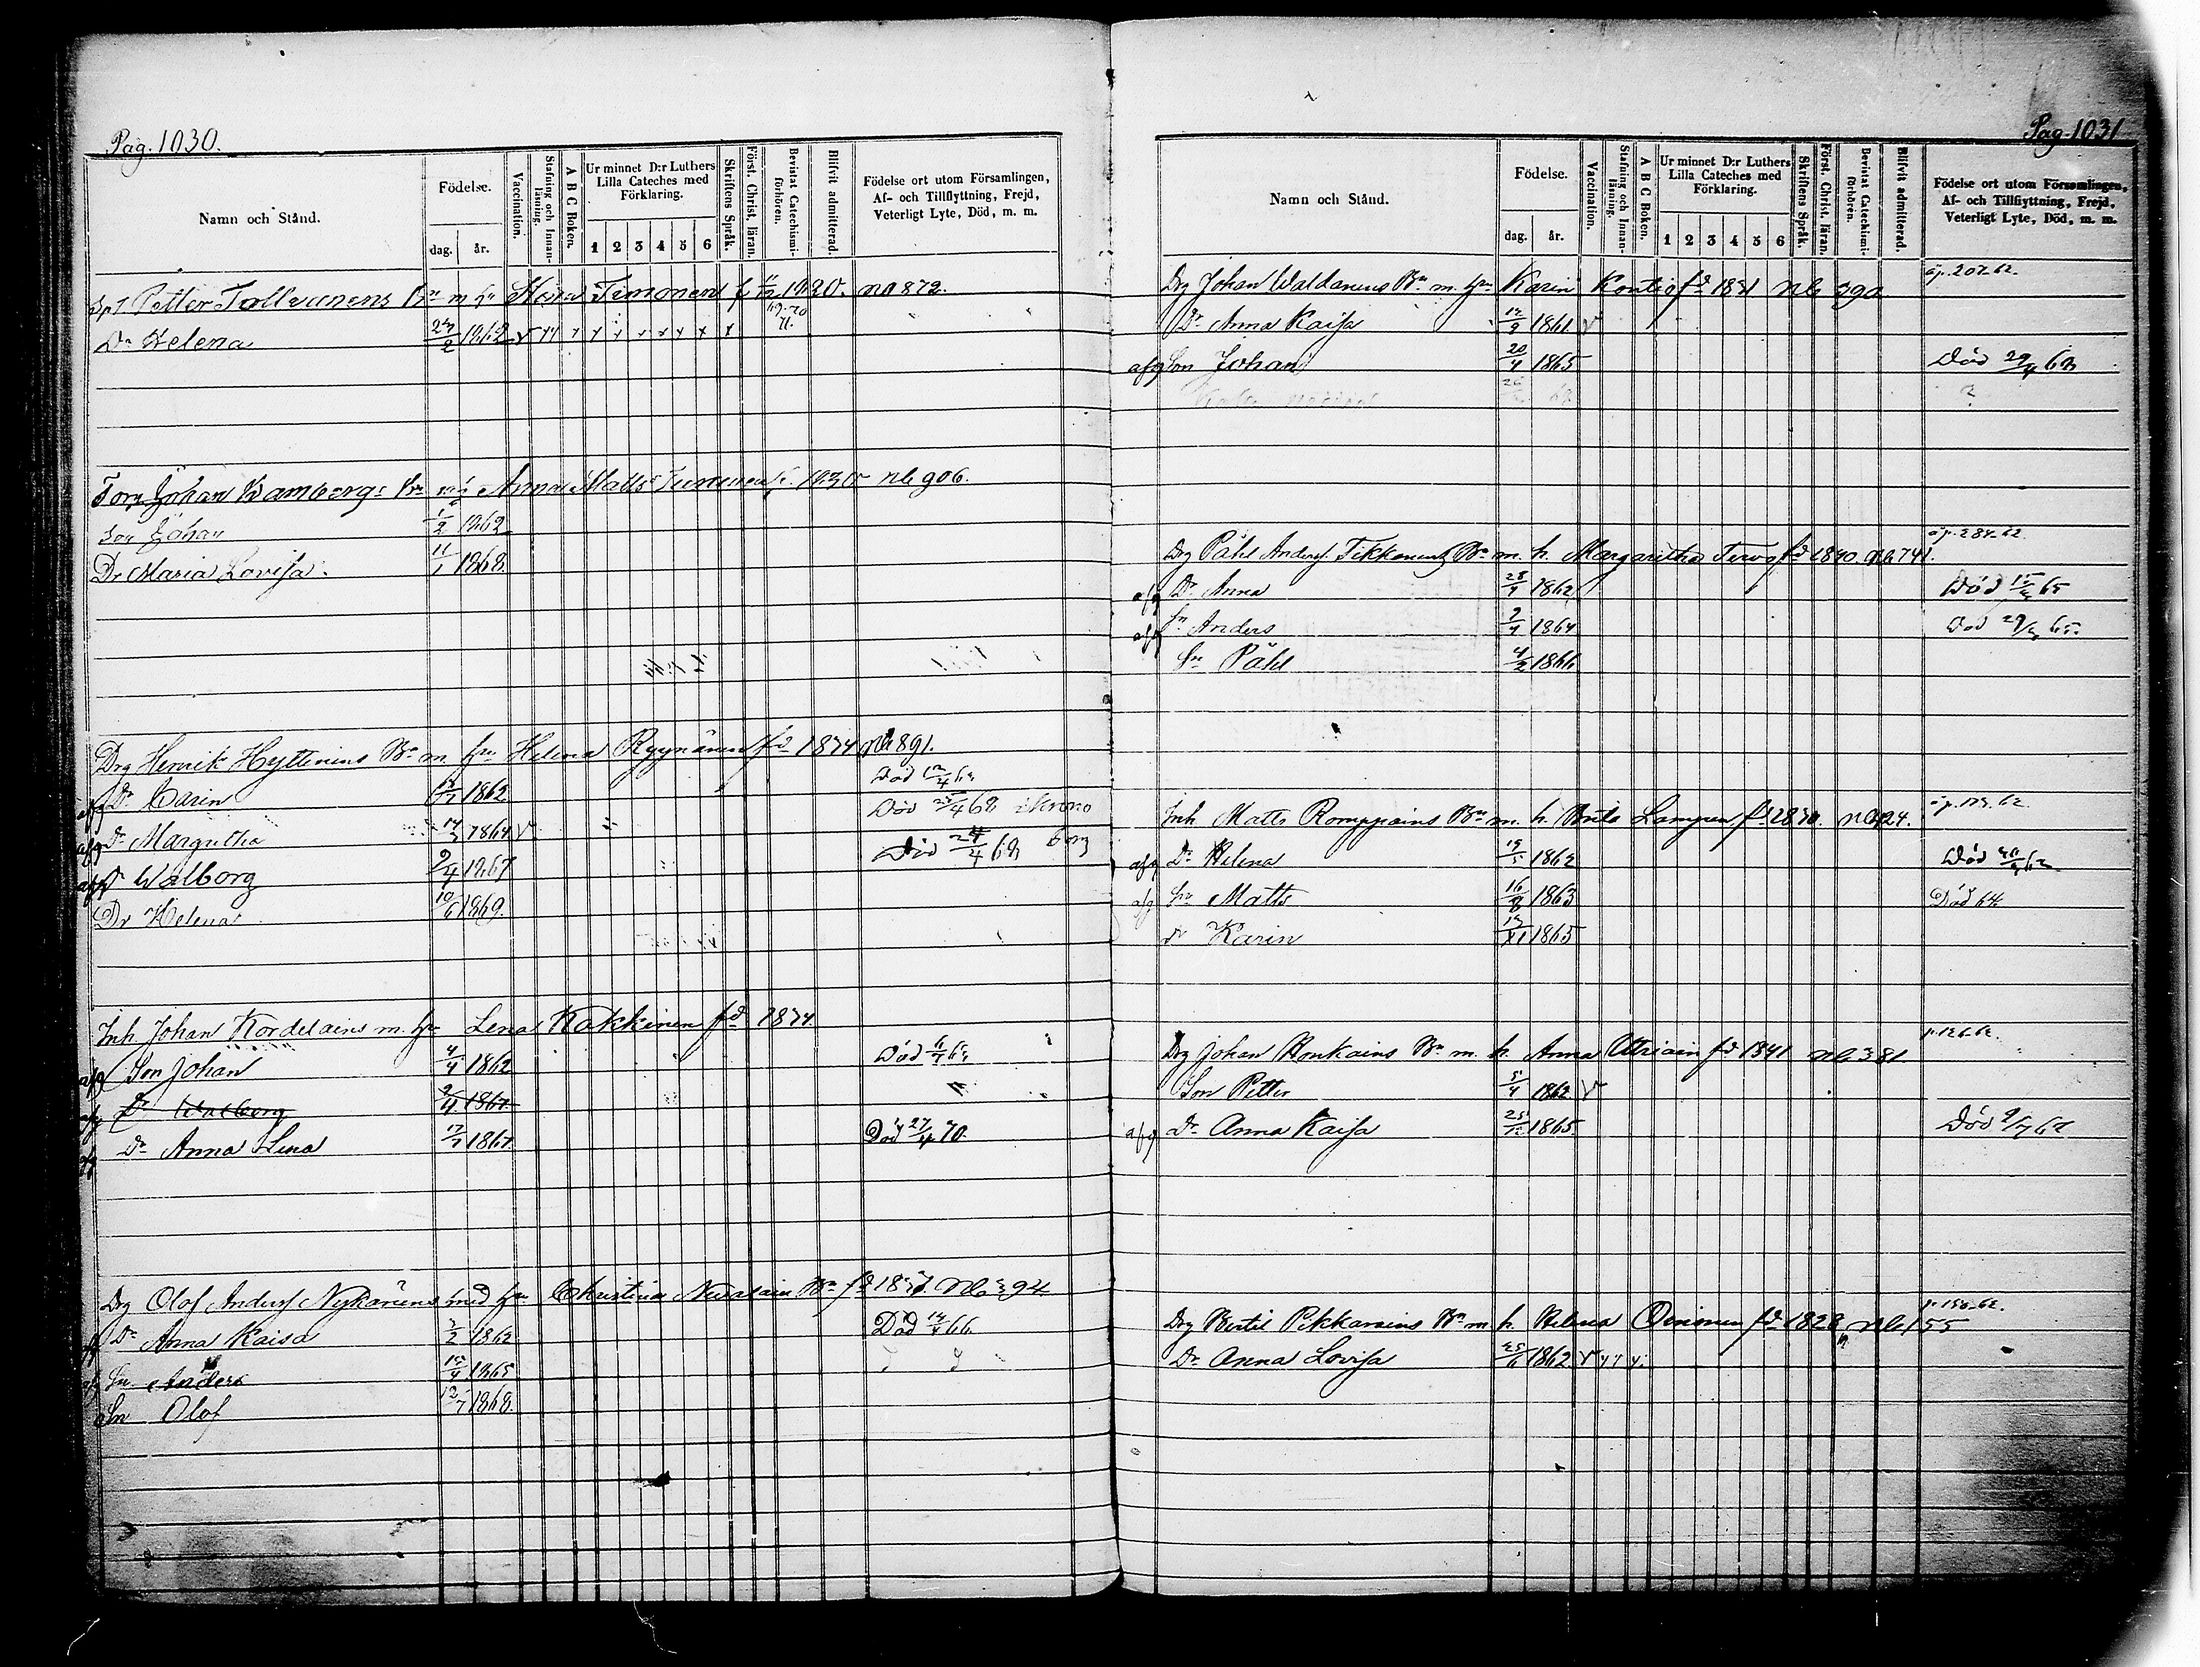 Pag. 1030.
Namn och Stånd.
Födelse.
dag.
år.
Vaccination.
Stafning och Innanläsning.
A B C Boken.
Ur minnet D:r Luthers
Lilla Cateches med
Förklaring.
1 2 3 4 5 6
Skriftens Språk.
Först. Christ. läran.
Bevistat Catechismiförhören.
Blifvit admitterad.
Födelse ort utom Församlingen,
Af- och Tillflyttning, Frejd,
Veterligt Lyte, Död, m. m.
Petter Tallvanens m hu Timonen n 872.
Dr Helena 1862
Torp Johan Kambergs Anna Matts nb 906.
son Johan 1/2 1862
Dr Maria Lovisa 11/1 1868
Drg Henrik Hyttinens Br m hu Helena Ryynänen fd 1834 nb 891.
afg Dr Carin 1862 Död
afg Dr Margretha 1864 v Död /4 68 i Krono
afg Dr Walborg 2/4 1867 Död 24/4 68 borg
Dr Helena 10/6 1869.
Inh Johan Kordelains m. hu Lena Kakkinen fd 1834
afg Son Johan 4/4 1862 Död
afg Dr Walborg 2/4 1867
afg Dr Anna Lena 17/7 1867. Död 27/4 70.
Drg Olof Anders Nykänens med hu Christina fd nb 394
Dr Anna Kaisa 2/2 1862 Död 66
Sn Anders 1865
Sn Olof 12/7 1868
Pag. 1031
Namn och Stånd.
Födelse.
dag.
år.
Vaccination.
Stafning och Innanläsning.
A B C Boken.
Ur minnet D:r Luthers
Lilla Cateches med
Förklaring.
1 2 3 4 5 6
Skriftens Språk.
Först. Christ. läran.
Bevistat Catechismiförhören.
Blifvit admitterad.
Födelse ort utom Församlingen,
Af- och Tillflyttning, Frejd,
Veterligt Lyte, Död, m. m.
Drg Johan Waldanens Br m. hu Karin Kontio fd 1831 nb 207.62.
Dr Anna Kaisa 1861 v
afg Son Johan 20/4 1865 Död 29/4 68
Drg Påhl Anders Tikkanens Br m. h. Margaretha Tervo fd 1840. nb 741. 284.62.
afg Dr Anna 28/4 1862 Död 65
afg Sn Anders 2/4 1864 Död 65.
Sn Påhl 4/2 1866
Inh Matts Romppains Br m. h. Brita Lampen nb 424.
afg Dr Helena 1862 Död
afg Sn Matts 16/8 1863 Död 64.
dr Karin 1865
Drg Johan Honkains Br m. h. Anna Atriain fd 1841 nb 381 126.62.
Son Petter 5/4 1862 v
afg Dr Anna Kaisa 25/12 1865 Död
Drg Bertil Pikkarains Br m h. Helena Oinonen fd 1828 nb 155
Dr Anna Lovisa 1862 v